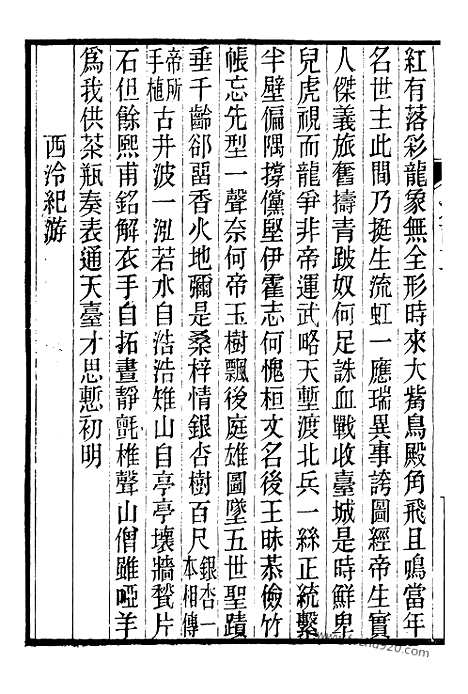 紅有落彩龍象無全形時來大觜鳥殿角飛且鳴當年
名世主此間乃挺生流虹一應瑞異事誇圖經帝生實
人傑義旅舊擣青跛奴何足誅血戰收臺城是時鮮卑
兒虎視而龍爭非帝運武略天塹渡北兵一絲正統繫
半壁偏隅撐儻堅伊霍志何愧桓文名後王昧恭儉竹
帳忘先型一聲奈何帝玉樹飄後庭雄圖墜五世聖蹟
垂千齡郤畱香火地彌是桑梓情銀杏樹百尺銀杏一本相傳
帝所手植古井波一泓若水自浩浩雉山自亭亭壞牆甃片
石但餘熙甫銘解衣手自拓晝靜氈椎聲山僧雖啞羊
爲我供茶瓶奏表通天臺才思慙初明
西泠紀游